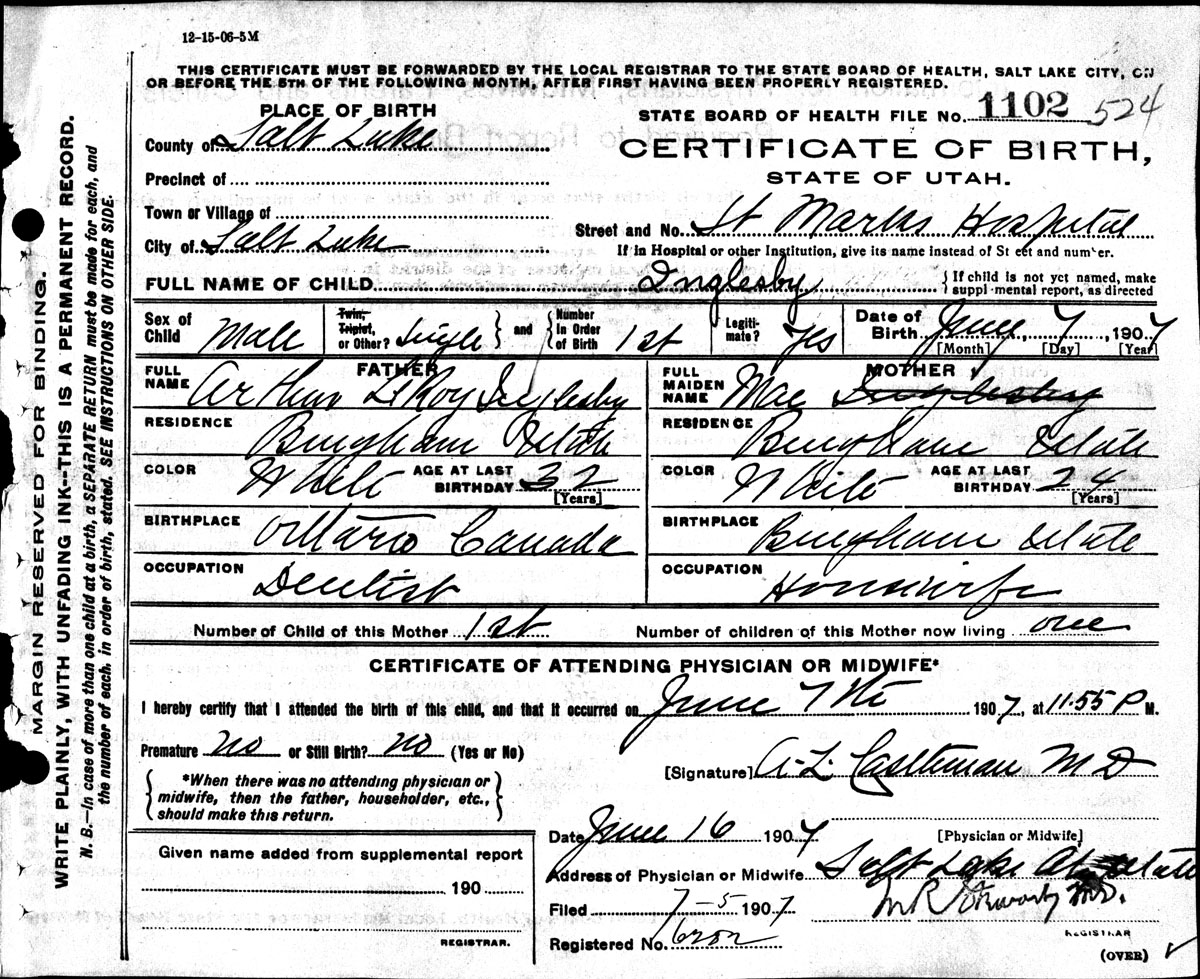 12-15-06-5M
THIS CERTIFICATE MUST BE FORWARDED BY THE LOCAL REGISTRAR TO THE STATE BOARD OF HEALTH, SALT LAKE CITY, ON
OR BEFORE THE 5TH OF THE FOLLOWING MONTH, AFTER FIRST HAVING BEEN PROPERLY REGISTERED.
PLACE OF BIRTH
STATE BOARD OF HEALTH FILE No. 1102 524
County of Salt Lake
CERTIFICATE OF BIRTH,
STATE OF UTAH.
Precinct of
Town or Village of
Street and No. St Marks Hospital
City of Salt Lake
If in Hospital or other Institution, give its name instead of St eet and number.
FULL NAME OF CHILD Inglesby { If child is not yet named, make
suppl mental report, as directed
Sex of Child Male Twin, Triplet, or Other? Single } and { Number In Order of Birth 1st Legiti-mate? Yes Date of Birth June 7, 1907
[Month] [Day] [Year]
FATHER MOTHER
FULL NAME Arthur LeRoy Inglesby FULL MAIDEN NAME Mae Inglesby
RESIDENCE Bingham Utah RESIDENCE Bingham Utah
COLOR White AGE AT LAST BIRTHDAY 32 [Years] COLOR White AGE AT LAST BIRTHDAY 24 [Years]
BIRTHPLACE Ontario Canada BIRTHPLACE Bingham Utah
OCCUPATION Dentist OCCUPATION Housewife
Number of Child of this Mother 1st Number of children of this Mother now living one
CERTIFICATE OF ATTENDING PHYSICIAN OR MIDWIFE*
I hereby certify that I attended the birth of this child, and that it occurred on June 7th 1907, at 11.55 P M.
Premature no or Still Birth? no (Yes or No)
[Signature] A. L. Castleman M D
{ *When there was no attending physician or
midwife, then the father, householder, etc.,
should make this return. }
Date June 16 1907 [Physician or Midwife]
Given name added from supplemental report
Address of Physician or Midwife Salt Lake City Utah
190
Filed 7-5 1907 M.D.
REGISTRAR.
Registered No.
REGISTRAR
(OVER)
MARGIN RESERVED FOR BINDING.
WRITE PLAINLY, WITH UNFADING INK--THIS IS A PERMANENT RECORD.
N. B.—In case of more than one child at a birth, a SEPARATE RETURN must be made for each, and
the number of each, in order of birth, stated. SEE INSTRUCTIONS ON OTHER SIDE.